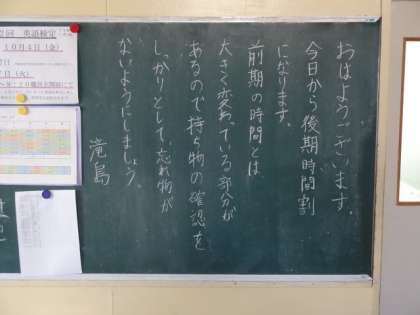 おはようございます。
今日から後期時間割
になります。
前期の時間とは
大きく変わっている部分が
あるので持ち物の確認を
しっかりとして、忘れ物が
ないようにしましょう。
滝島
回 英語検定
10月4日(金)